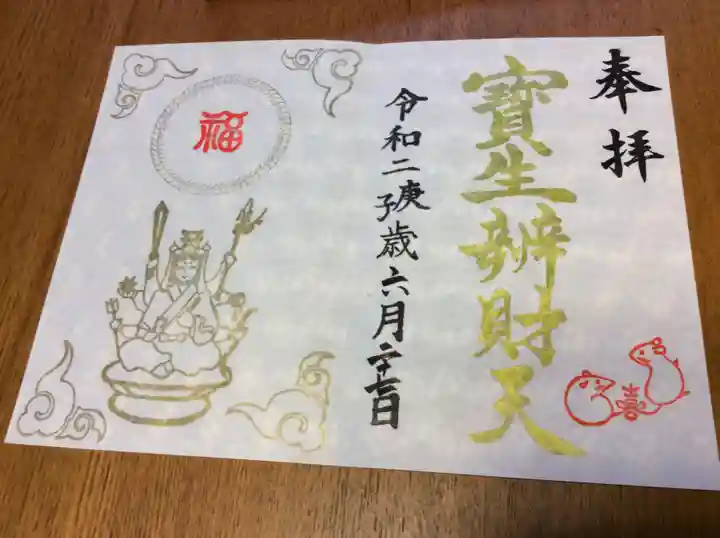 奉拝
寶生辨財天
令和二庚子歳六月二十七日
福
喜